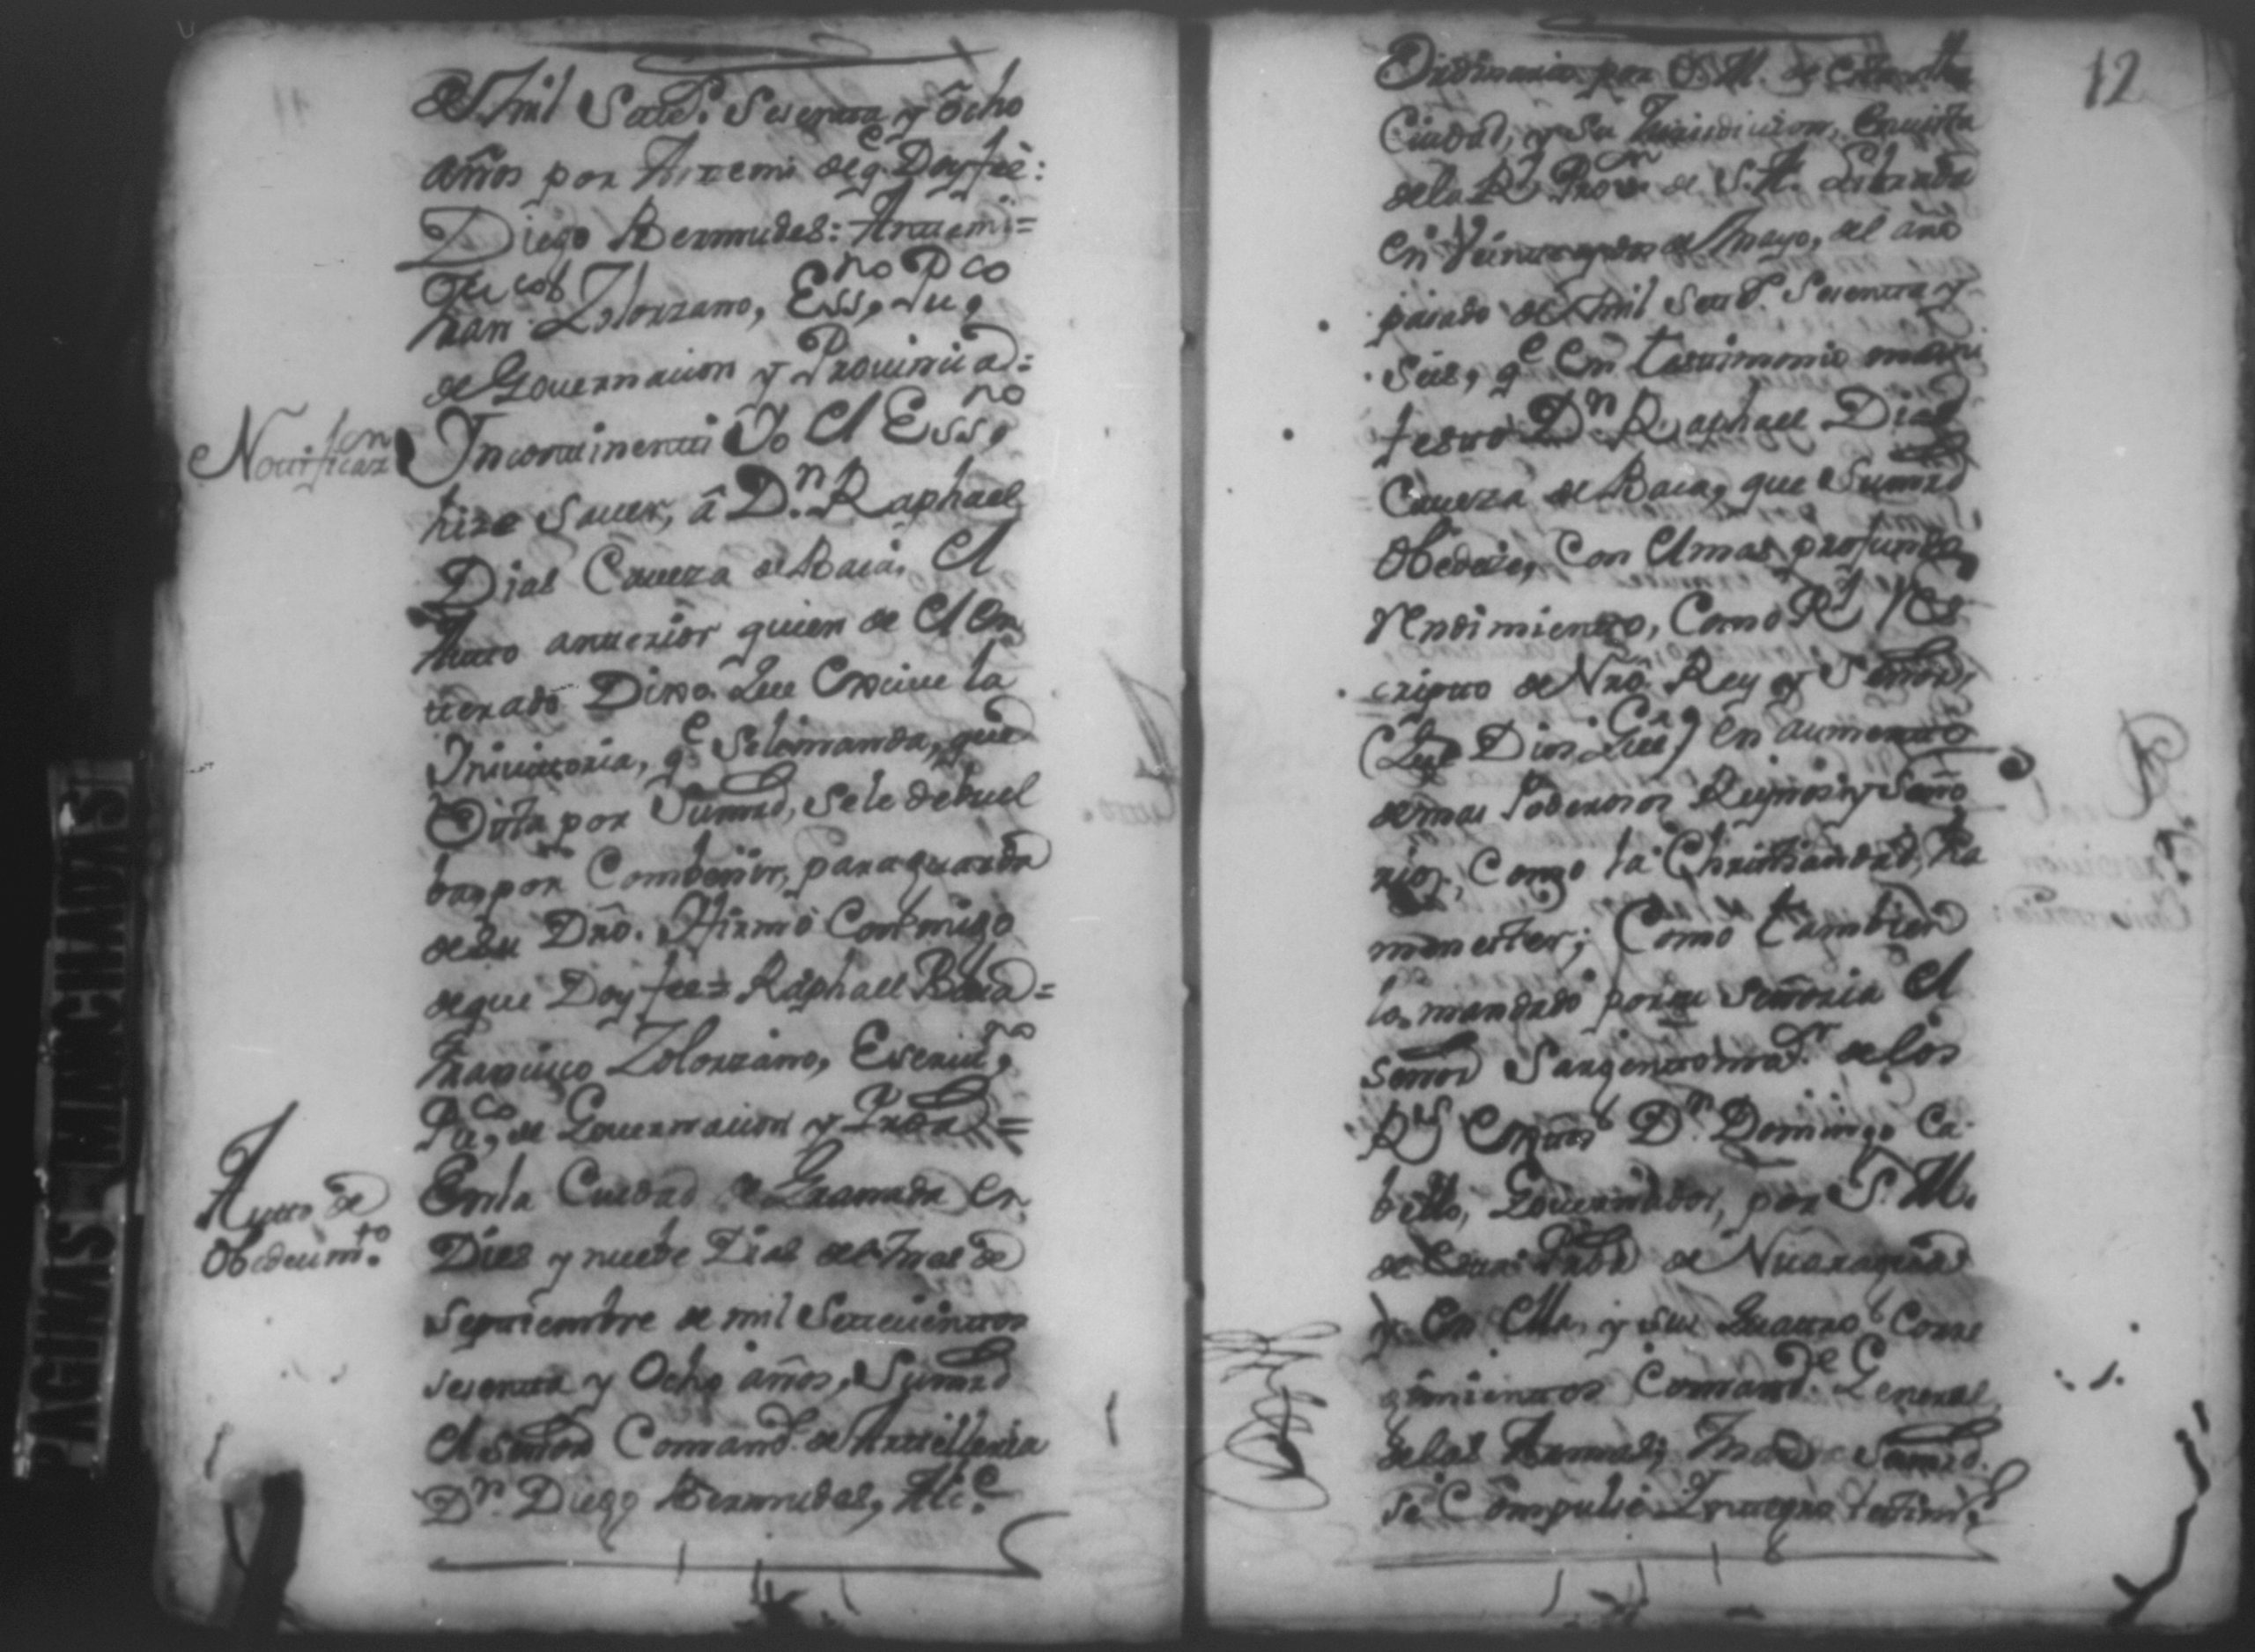 de Mil Setes. Sesenta y ôcho
años por Antemi de q.e Doy feè:
Diego Bermudes: Antemi=
Fran.co Zolorzano, Ess.no Pu.co
de Governacion y Provincia=
Notificaz.on
Yncontinenti Yo El Ess.no
hize Saver, â D.n Raphael
Dias Caveza de Baca, El
Auto anterior quien de El en
terado Dixo. Que Exsive la
Ynivitoria, q.e Selemanda, que
Vista por Sumrd, sele debuel
ba, por Combenir, para guarda
desu Dro. Yfirmò Conmigo
deque Doy fee= Raphael Baca=
Francisco Zolorzano, Escriv.no
Pu.co de Governacion y Proa=
Autto de
Obedecim.to
Enla Ciudad de Granada en
Dies y nuebe Dias del Mes de
Septiembre de mil Settecientos
sesenta y Ocho años, Sumrd
El señor Comand.te de Artilleria
D.n Diego Bermudes, Alc.e
12
Ordinario por S. M. de esta
Ciudad, y Su Jurisdicion, En vista
dela R.l Prov.on de S. A. Librada
en Veinte y dos de Mayo, del año
pasado de Mil Sete.s Sesenta y
Seis, q.e En testimonio mani
festò D.n Raphael Dias
Caveza de Baca, que Sumrd
Obedece, Con El mas profundo
rendimiento, Como R.l res
cripto de Nrô. Rey y Señor,
(Que Dios Gue) en aumento
demas Poderosos Reynos y Seño
rios, Como la Christiandad, ha
menester; Como tambien
lo mandado porsu Señoria El
Señor Sargentomaór. delos
R.s Extos. D.n Domingo Ca
bello, Governador, por S. M.
de Proa de Nicaragua
y En Ella, y sus Quatro Corre
gimientos Comand.te General
delas Armas; Mando Sumrd.
se Compulse Yntegro testim.o